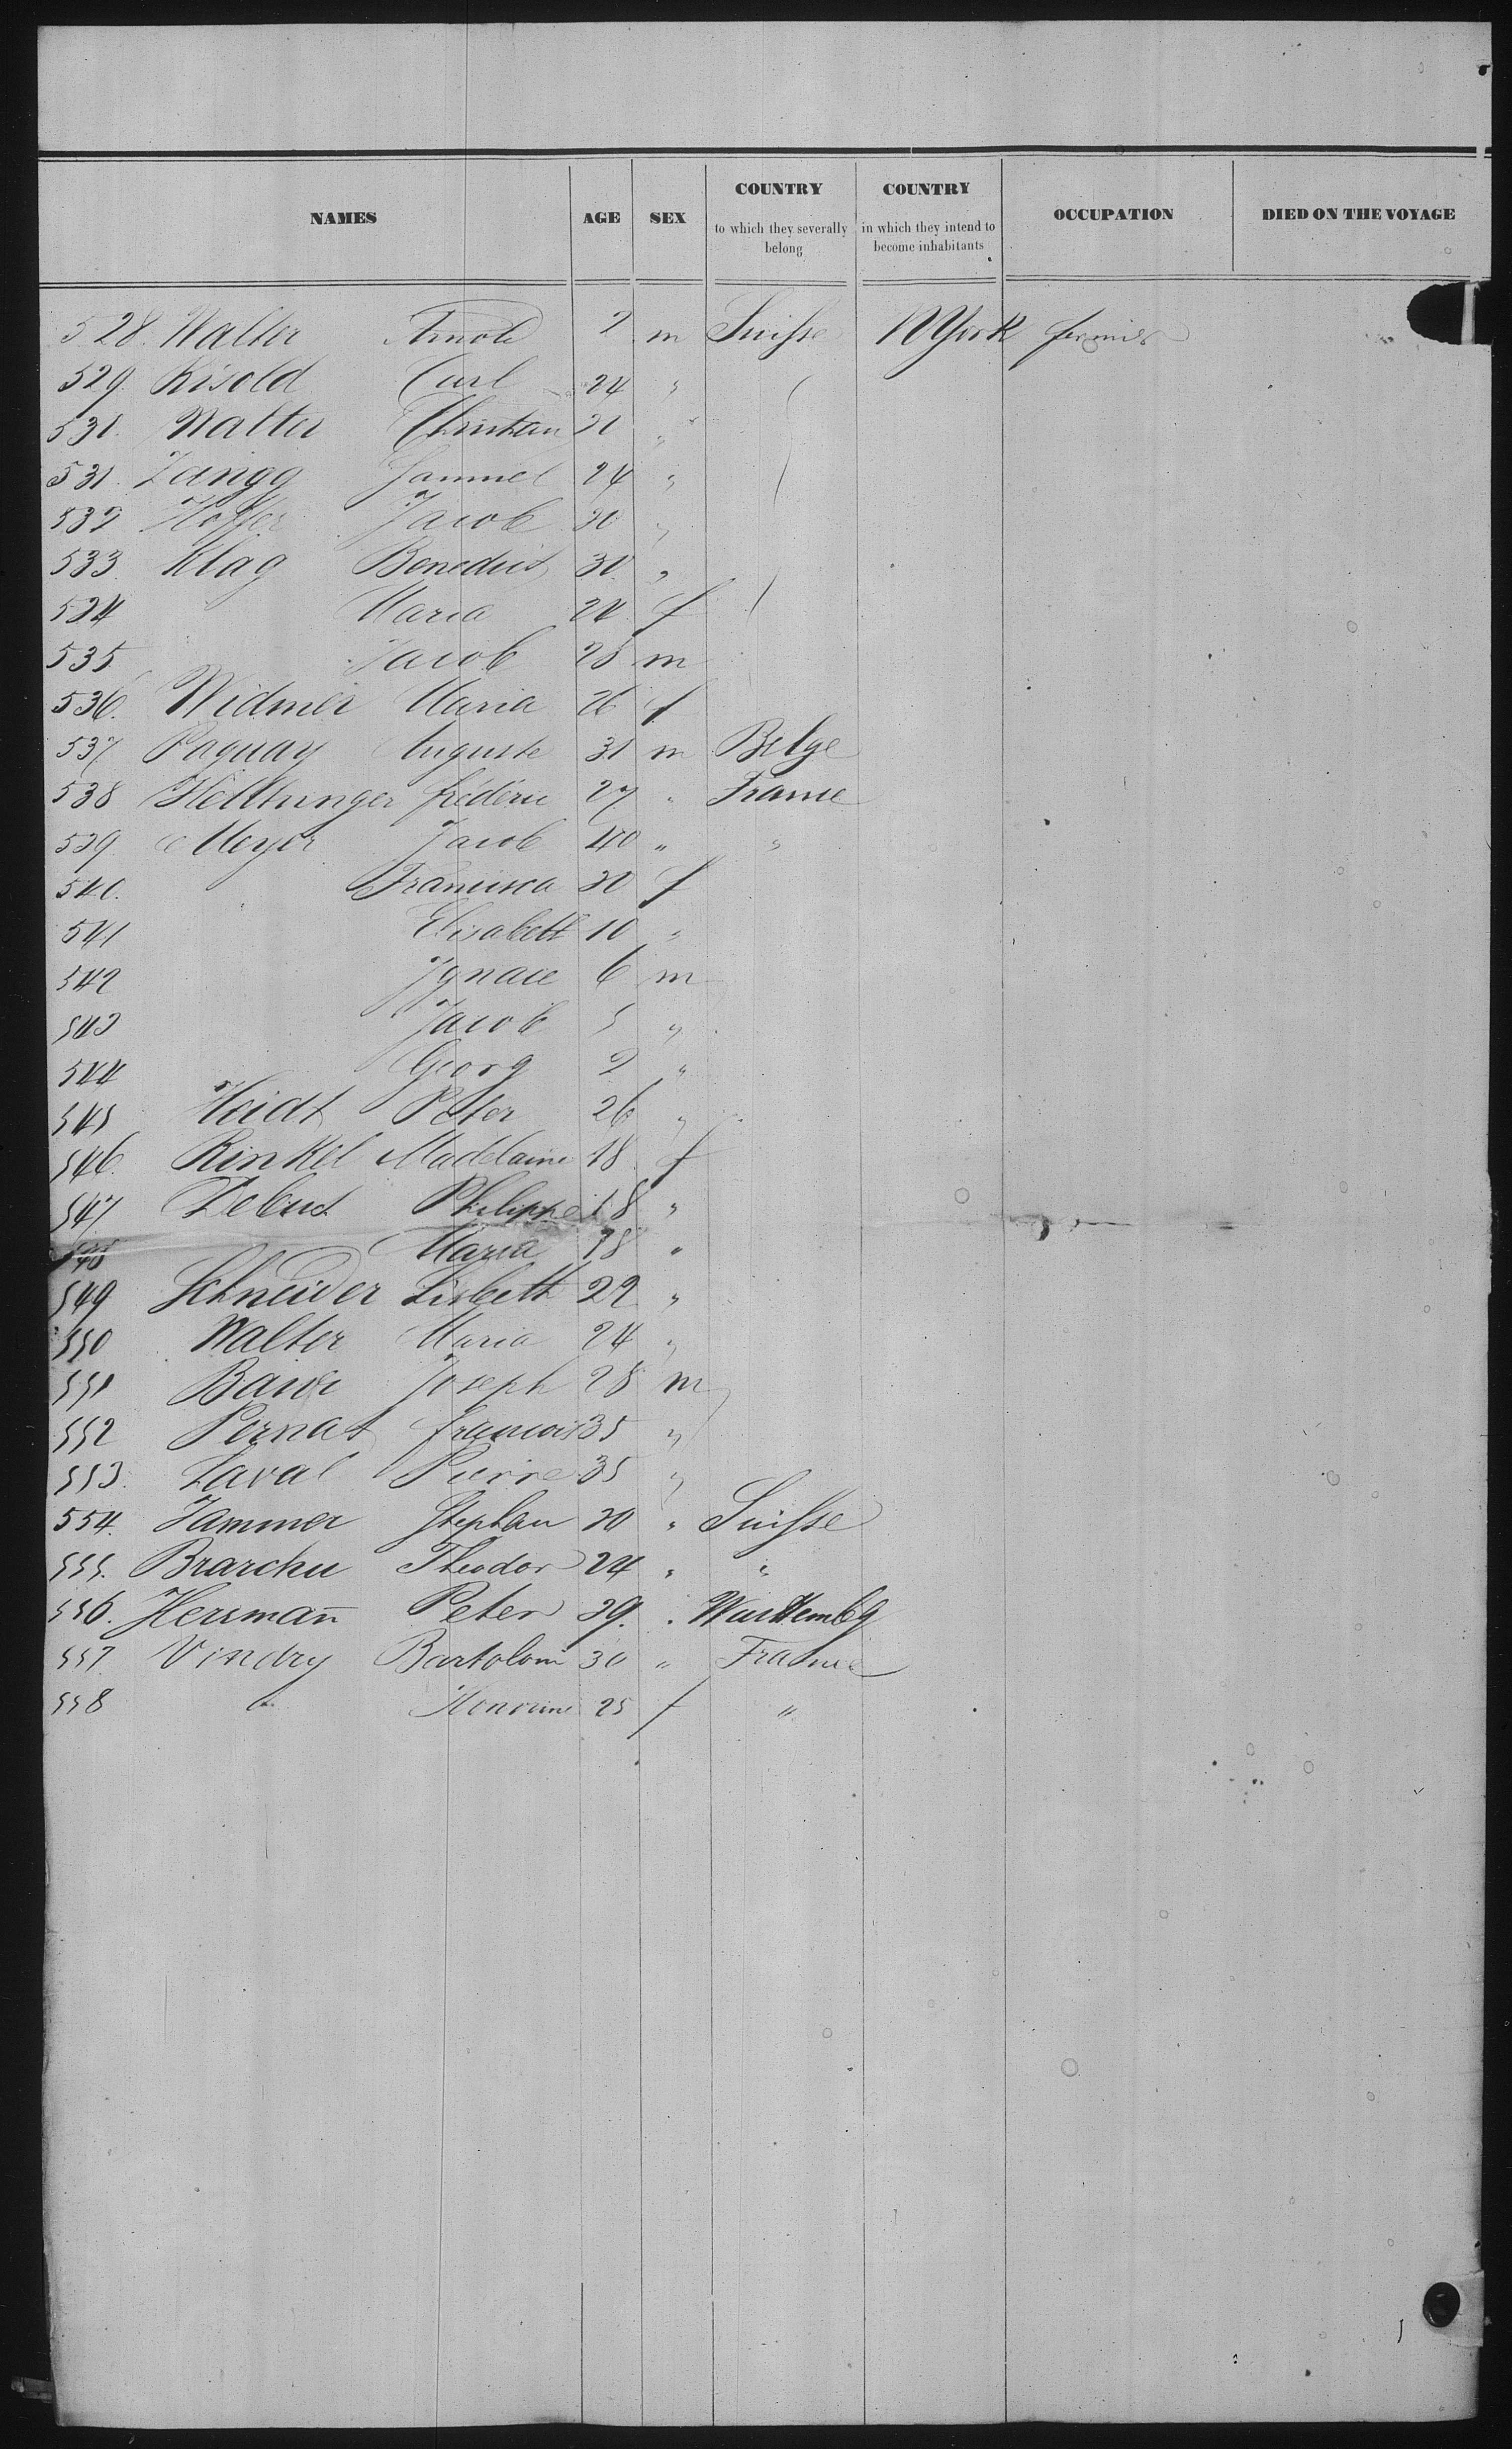 NAMES AGE SEX COUNTRY to which they severally belong COUNTRY in which they intend to become inhabitants OCCUPATION DIED ON THE VOYAGE
528. Walter Arnold 2 m Suisse NYork
529. Risold Carl 24 "
531. Walter Christian 21 "
531. Zaugg Samuel 24 "
532 Hoffer Jacob 30 "
533. Klag Benedict 30 "
534 Maria 24 f
535 Jacob 25 m
536. Widmer Maria 26 f
537 Paquay Auguste 31 m Belge
538 Frédéric 27 " France
539 Meyer Jacob 40 " "
540. Francisca 30 f
541 Elisabeth 10 "
542 Ignace 6 m
543 Jacob 5 "
544 Georg 2 "
545 Heidt Peter 26 "
546. Rinkel Madelaine 18 f
547 Debus Philippe 18 "
548 Maria 18 "
549 Schneider Lisbeth 22 "
550 Walter Maria 24 "
551 Joseph 28 m
552 Pernat francois 35 "
553. Laval Pierre 35 "
554. Jammer Stephan 30 " Suisse
555. Theodor 24 " "
556. Herrmann̄ Peter 29. " Wurttembg
557 Vindry Bartolomi 30 " France
558 " Honorine 25 f "